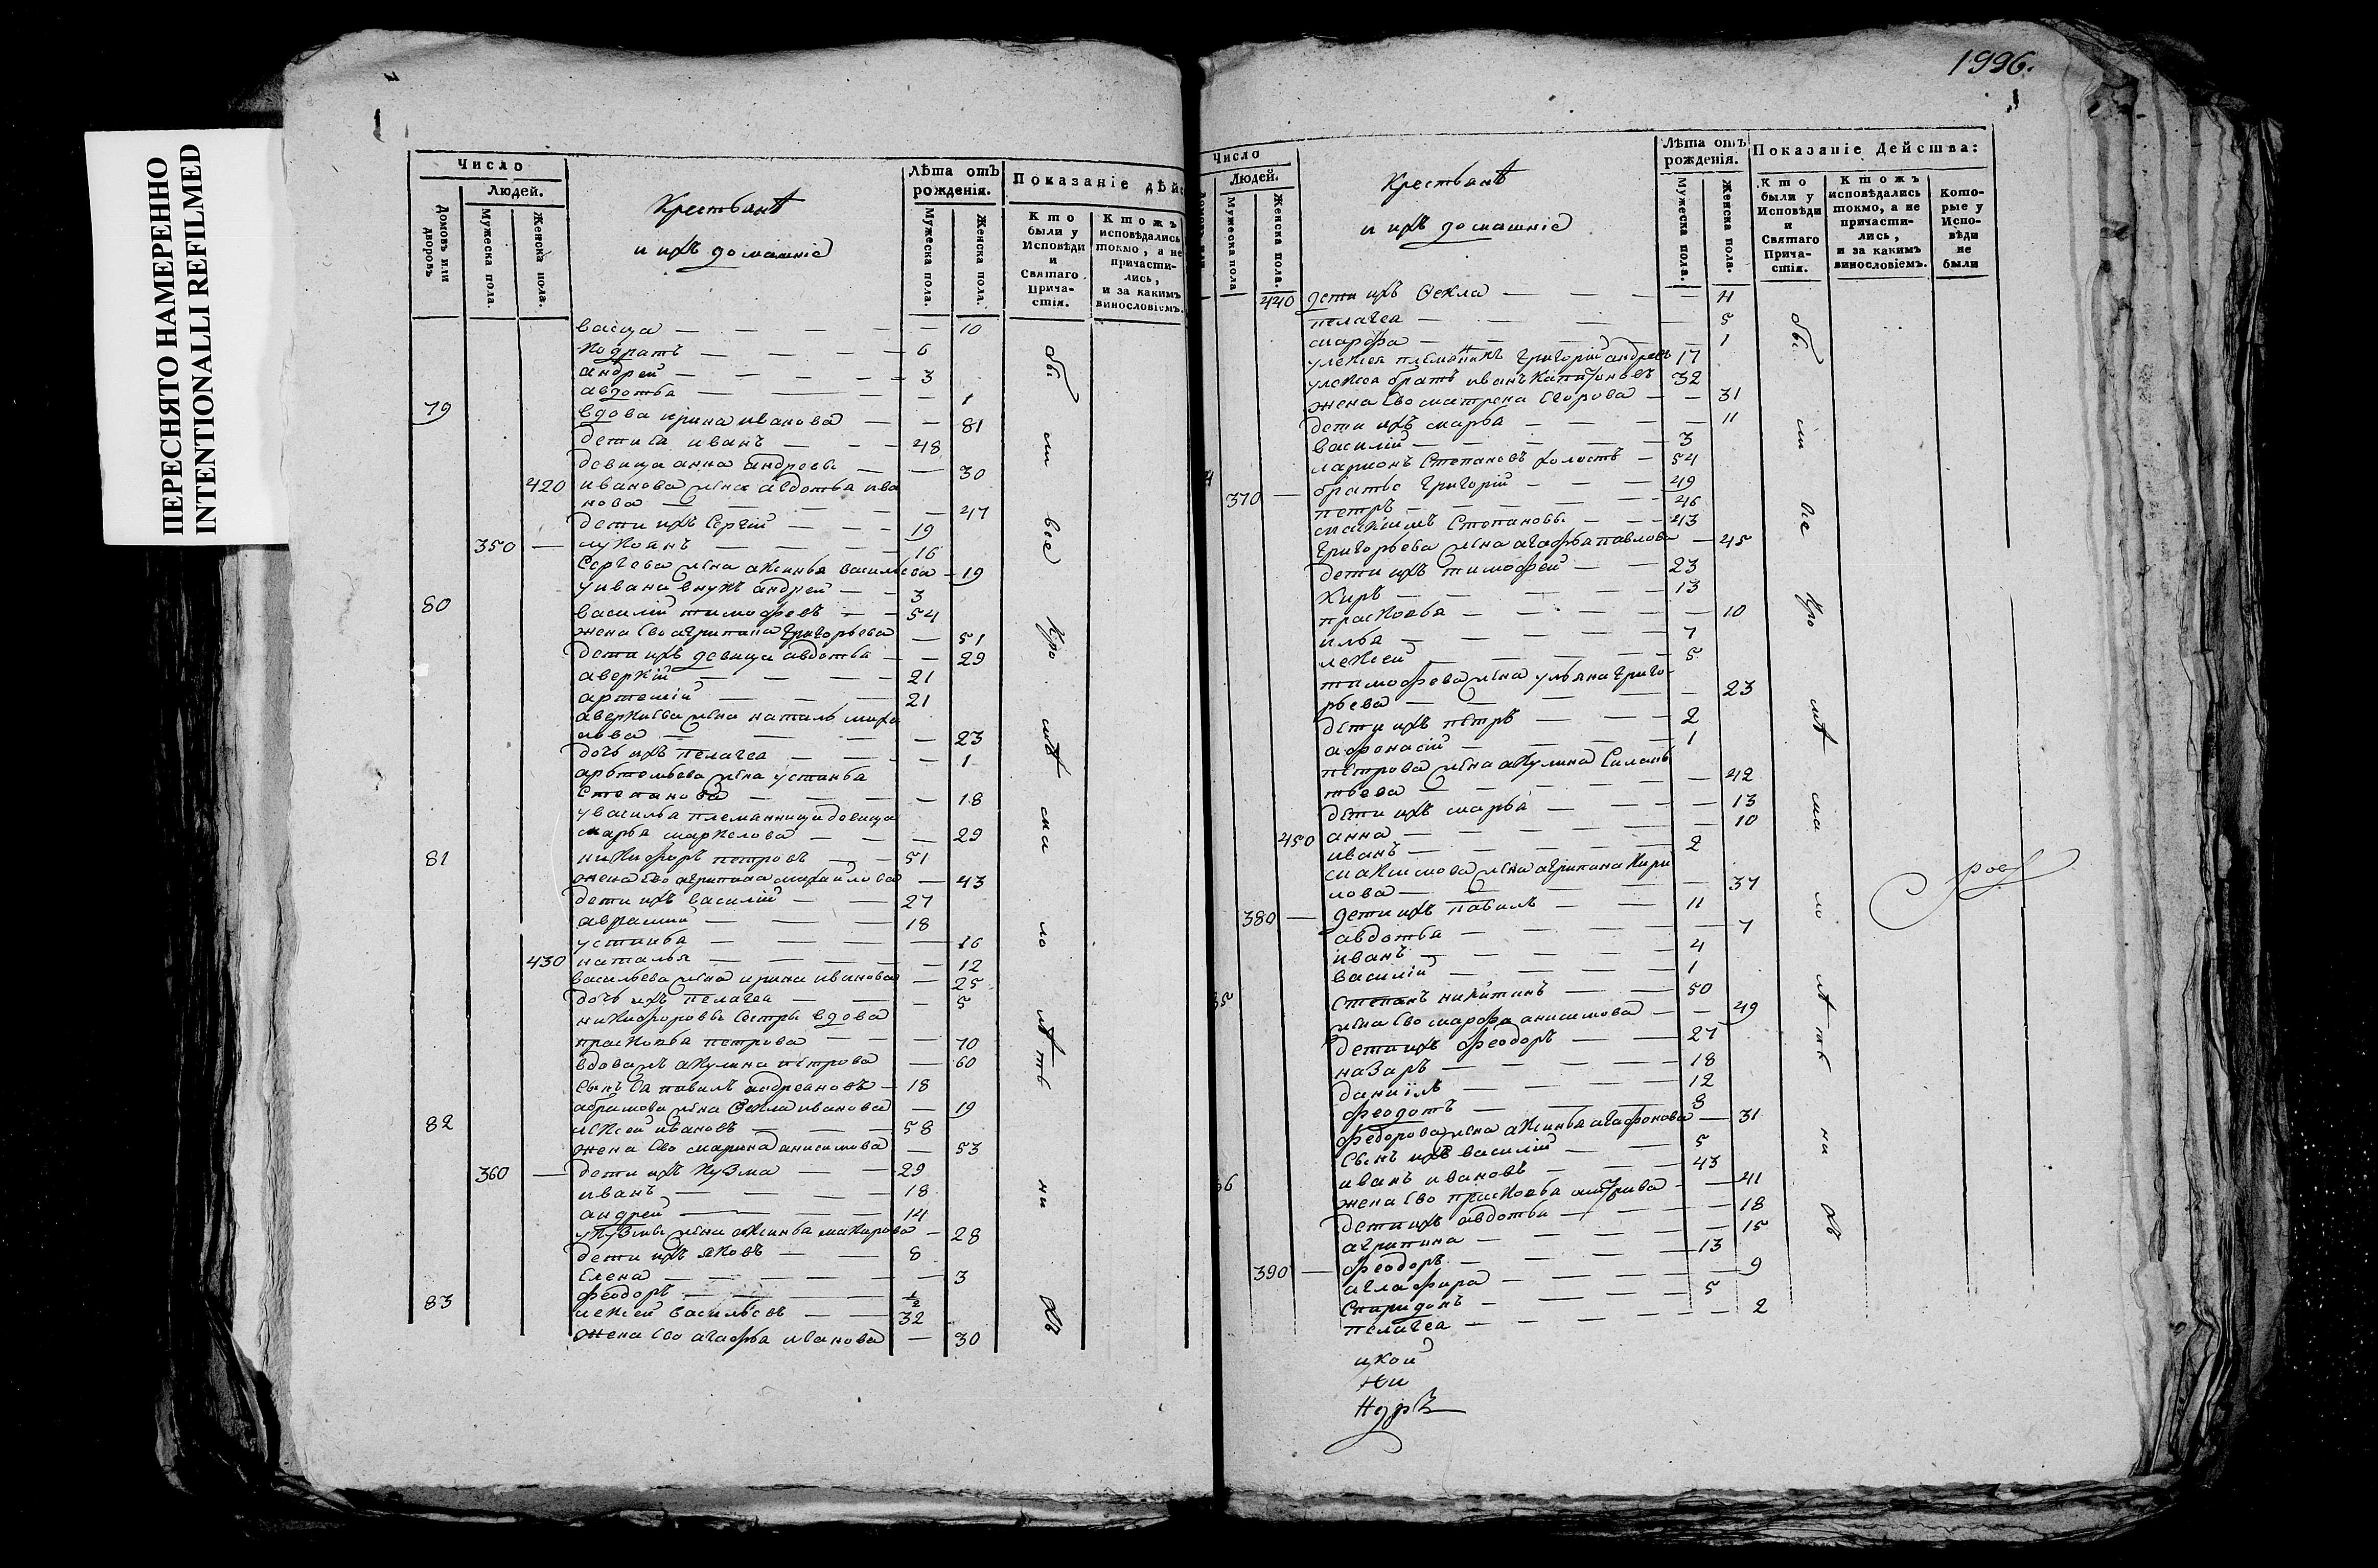 ПЕРЕСНЯТО НАМЕРЕННО
INTENTIONALLI REFILMED
Число
Людей.
Домовъ или дворовъ
Мужеска пола.
Женска пола.
Крестьянѣ
и ихъ домашніе
Лѣта отъ рожденія.
Мужеска пола.
Женска пола.
Показаніе дѣйс
Кто были у Исповѣди и Святаго Прича-стія.
Ктожъ исповѣдались токмо, а не причасти-лись, и за какимъ винословіемъ.
васца — 10
кодратъ — 6
андрей — 3
авдотья — 1
79 вдова ирина иванова — 81
дети еа иванъ — 48
девица анна андреевы — 30
420 иванова жена авдотья ива
нова — 47
дети ихъ Сергій — 19
350 — лукоянъ — 16
Сергева жена аксинья васильева — 19
у ивана внукъ андрей — 3
80 василій тимофеевъ — 54
жена ево агрипина григорьева — 51
дети ихъ девица авдотья — 29
аверкій — 21
артемій — 21
аверкиева жена наталь миха
лова — 23
дочь ихъ пелагеа — 1
артомьева жена устинья
Степанова — 18
у василья племянница девица
марья маркелова — 29
81 никифоръ петровъ — 51
жена ево агрипина михайлова — 43
дети ихъ василій — 27
аврамий — 18
устинья — 16
430 наталья — 12
васильева жена ирина иванова — 25
дочь ихъ пелагеа — 5
никифоровы сестры вдова
прасковья петрова — 70
вдова жъ акулина петрова — 60
сынъ еа павилъ андреановъ — 18
абрамова жена Ѳекла иванова — 19
82 алексей ивановъ — 58
жена ево марина анисимова — 53
360 — дети ихъ кузма — 29
иванъ — 18
андрей — 14
у кузмы жена аксинья макарова — 28
дети ихъ яковъ — 8
Елена — 3
феодоръ — 1/2
83 алексей васильевъ — 32
жена ево агафья иванова — 30
бы ли все кро мѣ ма ло лѣ тъ ни хъ
1996.
Число
Людей.
Мужеска пола
Женска пола.
Крестьянѣ
и ихъ домашніе
Лѣта отъ рожденія.
Мужеска пола.
Женска пола.
Показаніе Действа:
Кто были у Исповѣди и Святаго Прича-стія.
Ктожъ исповѣдались токмо, а не причасти-лись, и за какимъ винословіемъ.
Кото-рые у Испо-вѣди не были
440 дети ихъ Ѳекла — 4
пелагеа — 5
марфа — 1
у алексея племянникъ григорій андреевъ 17
у алексея братъ иванъ капитоновъ 32
жена ево матрена егорова — 31
дети ихъ марья — 11
василій — 3
ларионъ Степановъ холостъ — 54
370 — братье григорій — 49
петръ — 46
максимъ Степановы — 43
григорьева жена агафья павлова — 45
дети ихъ тимофей — 23
киръ — 13
прасковья — 10
илья — 7
алексей — 5
тимофева жена ульяна григо-
рьева — 23
дети ихъ петръ — 2
афонасій — 1
петрова жена акулина Силань
тьева — 42
дети ихъ марья — 13
450 анна — 10
иванъ — 2
максимова жена агрипина кири
лова — 37
380 — дети ихъ павилъ — 11
авдотья — 7
иванъ — 4
василій — 1
85 Степанъ никитинъ — 50
жена ево марфа анисимова — 49
дети ихъ феодоръ — 27
назаръ — 18
даниїлъ — 12
феодотъ — 8
федорова жена аксинья агафонова — 31
сынъ ихъ василій — 5
86 иванъ ивановъ — 43
жена ево прасковья — 41
дети ихъ авдотья — 18
агрипина — 15
390 — феодоръ — 13
аглафира — 9
Спиридонъ — 5
пелагеа — 2
бы ли все кро мѣ ма ло лѣ тъ ни хъ